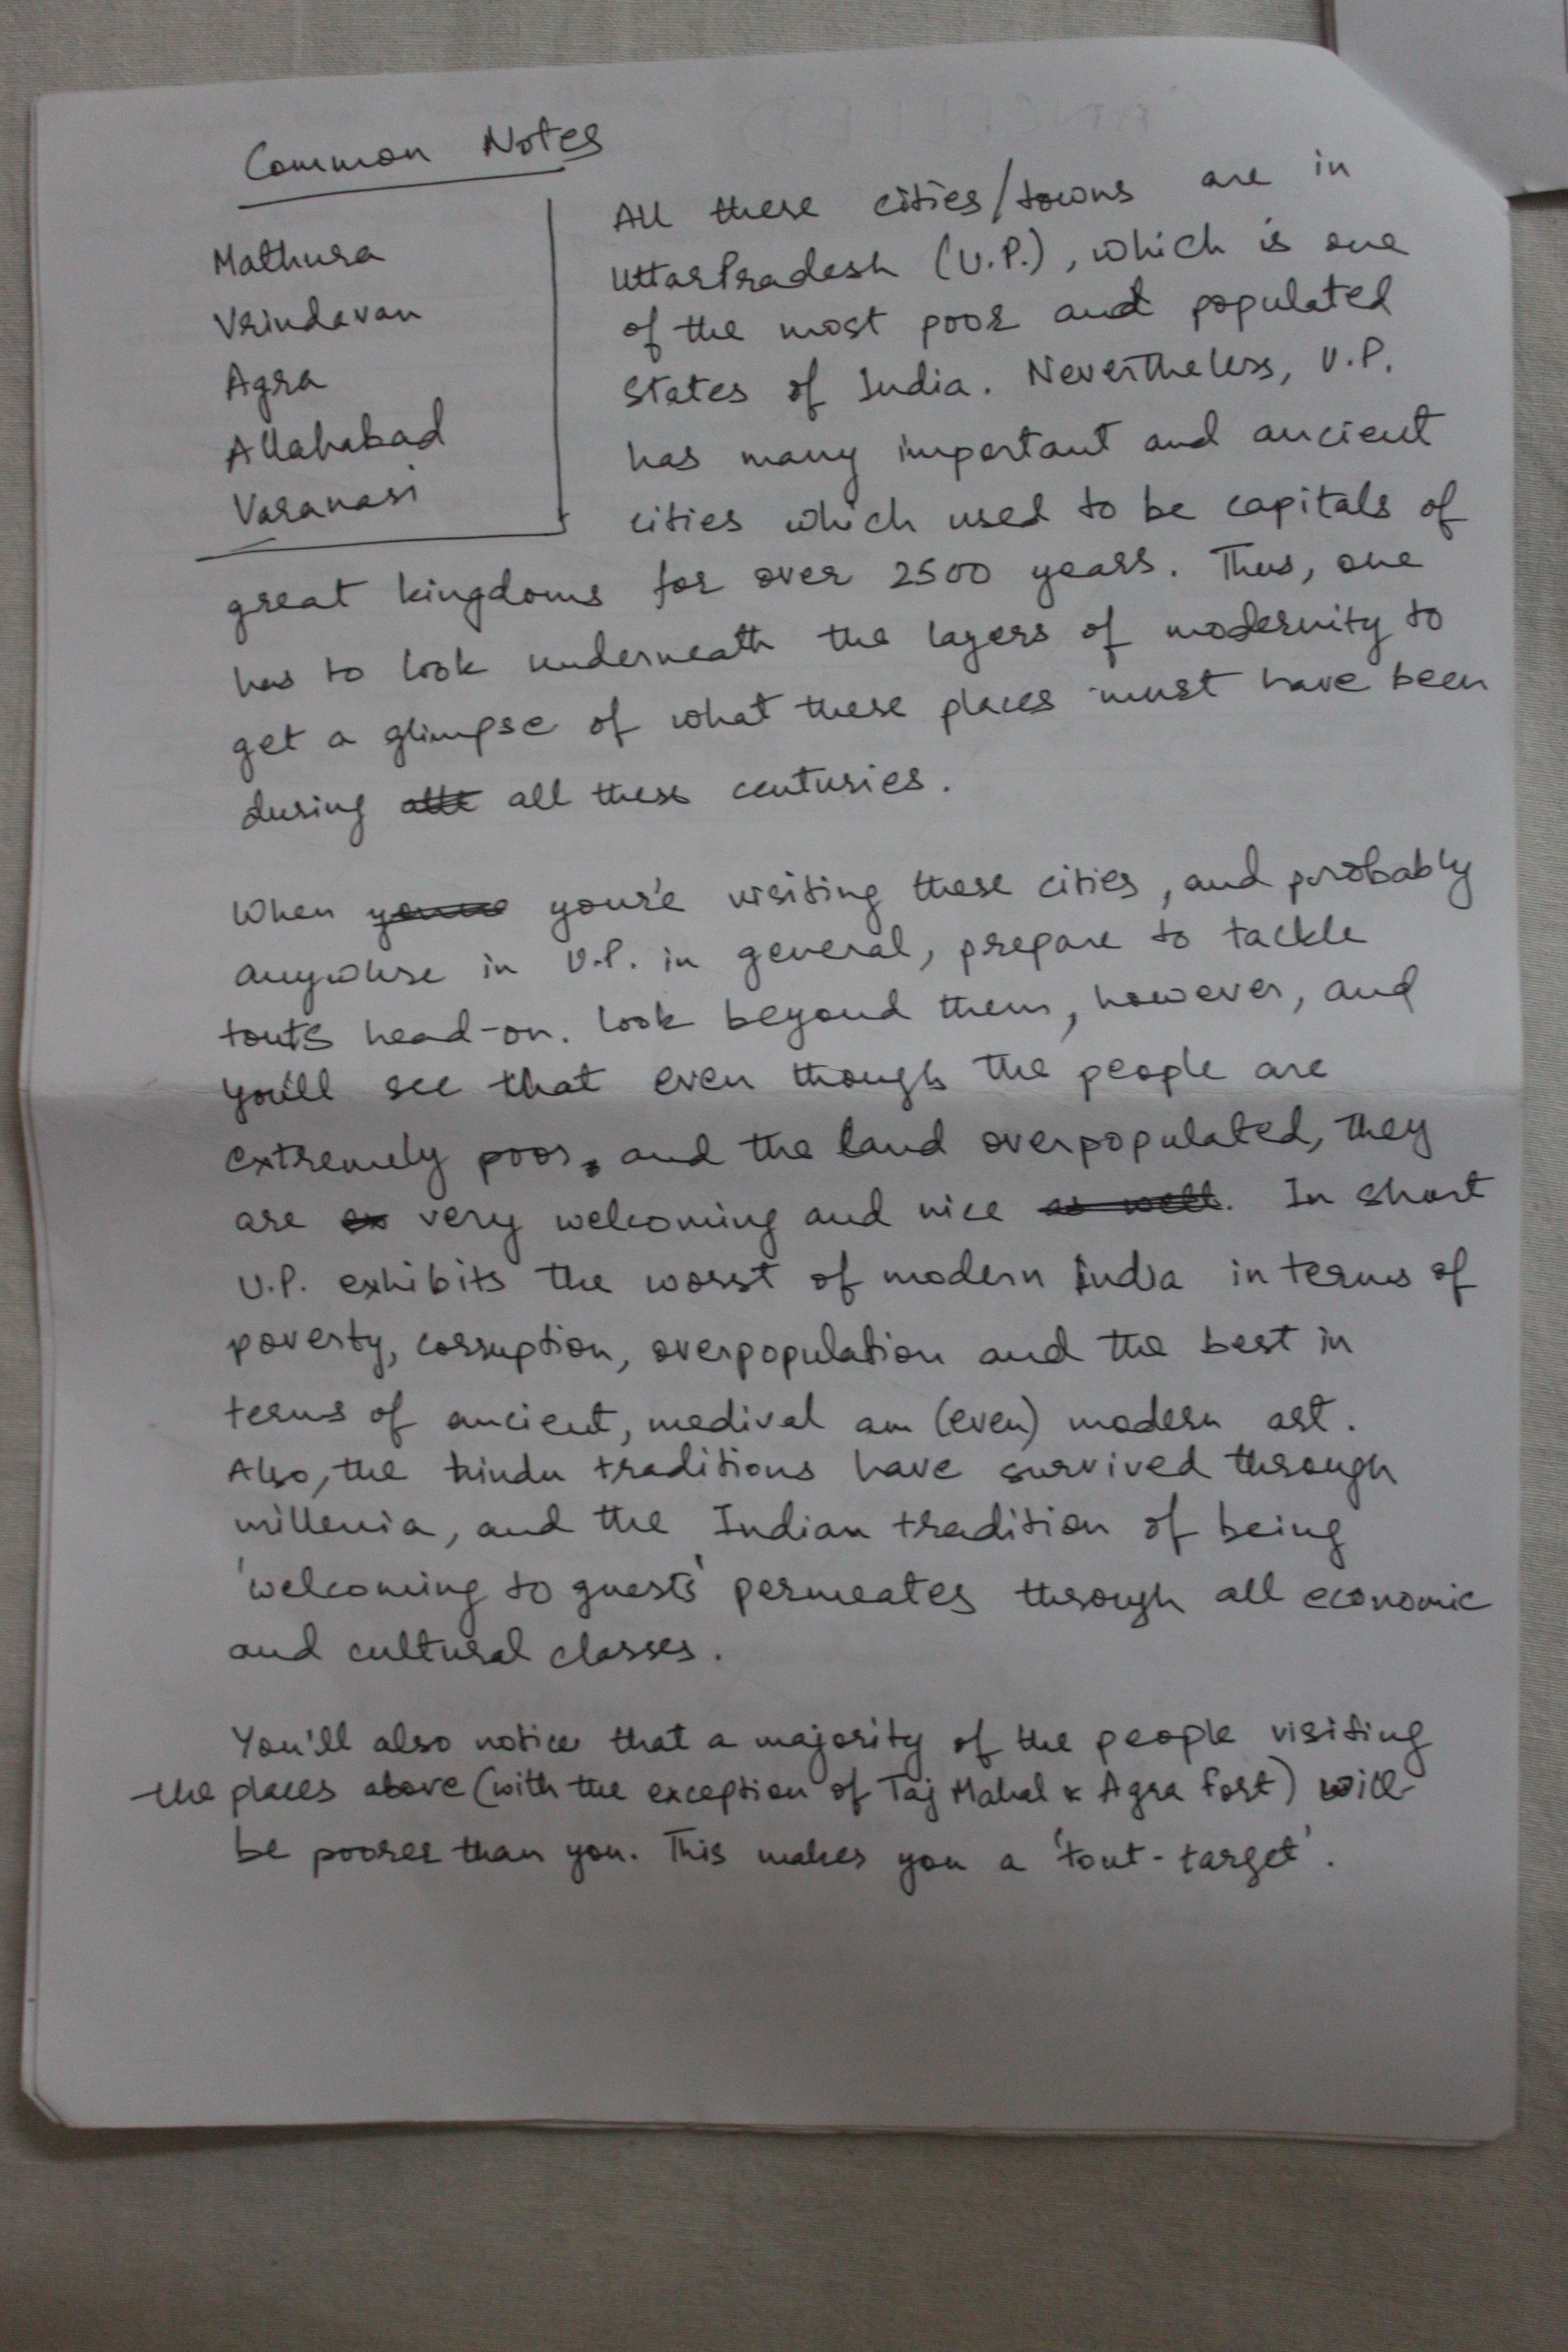 Common Notes
Mathura
Vrindavan
Agra
Allahabad
Varanasi
All these cities/towns are in
UttarPradesh (U.P.), which is one
of the most poor and populated
States of India. Nevertheless, U.P.
has many important and ancient
cities which used to be capitals of
great kingdoms for over 2500 years. Thus, one
has to look underneath the layers of modernity to
get a glimpse of what these places must have been
during all these centuries.
When you're visiting these cities, and probably
anywhere in U.P. in general, prepare to tackle
touts head-on. Look beyond them, however, and
you'll see that even though the people are
extremely poor, and the land overpopulated, they
are very welcoming and nice. In short
U.P. exhibits the worst of modern India in terms of
poverty, corruption, overpopulation and the best in
terms of ancient, medival an (even) modern art.
Also, the hindu traditions have survived through
millenia, and the Indian tradition of being
'welcoming to guests' permeates through all economic
and cultural classes.
You'll also notice that a majority of the people visiting
the places above (with the exception of Taj Mahal & Agra Fort) will
be poorer than you. This makes you a 'tout-target'.